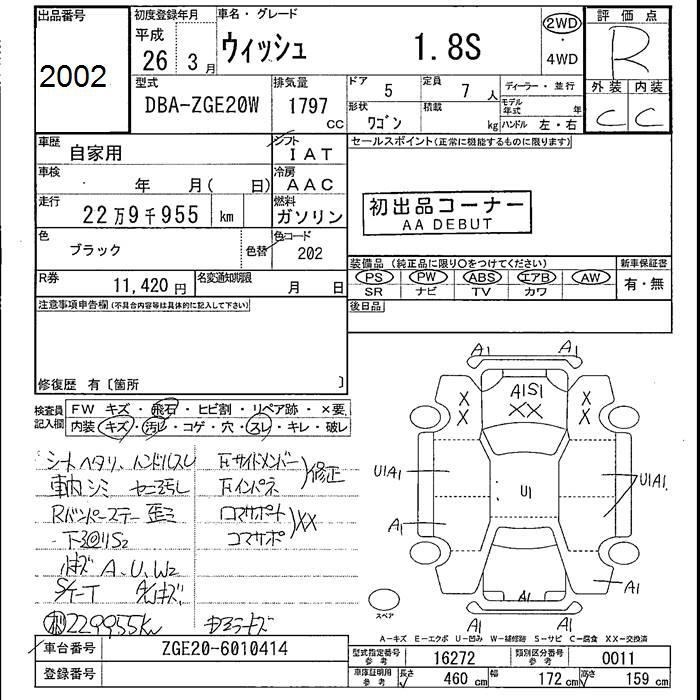 出品番号 初度登録年月 車名・グレード 評価点
2002 平成 26 3月 ウィッシュ 1.8S 2WD・4WD R
型式 排気量 ドア 定員 ディーラー・並行 外装 内装
DBA-ZGE20W 1797 CC 5 7人 モデル年式 年 C C
形状 ワゴン 積載 kg ハンドル 左・右
車歴 自家用 シフト IAT セールスポイント(正常に機能するものに限ります)
車検 年 月( 日) 冷房 AAC
走行 22万9千955 km 燃料 ガソリン 初出品コーナー
AA DEBUT
色 ブラック 色替 色コード 202
装備品 (純正品に限り○をつけてください) 新車保証書
R券 11,420円 名変通知期限 月 日 PS PW ABS エアB AW 有・無
SR ナビ TV カワ
注意事項申告欄(不具合内容等は具体的に記入して下さい) 後日品
修復歴 有〔箇所 〕
検査員記入欄 FW キズ・飛石・ヒビ割・リペア跡・×要
内装 キズ・汚レ・コゲ・穴・スレ・キレ・破レ
シートヘタリ、ハンドルスレ 左サイドメンバー
車内シミ 左インパネ 修正
Rバンパーステー歪ミ コマサポート
コマサポ XX
A、U、W2
229955km
車台番号 ZGE20-6010414
登録番号
A1 A1
A1S1
XX
X X
X X
U1A1 U1 U1A1
A1
A1
A1
A1 A1
スペア
A-キズ E-エクボ U-凹み W-補修跡 S-サビ C-腐食 XX-交換済
型式指定番号 参考 16272 類別区分番号 参考 0011
車庫証明用 参考 長さ 460 cm 幅 172 cm 高さ 159 cm